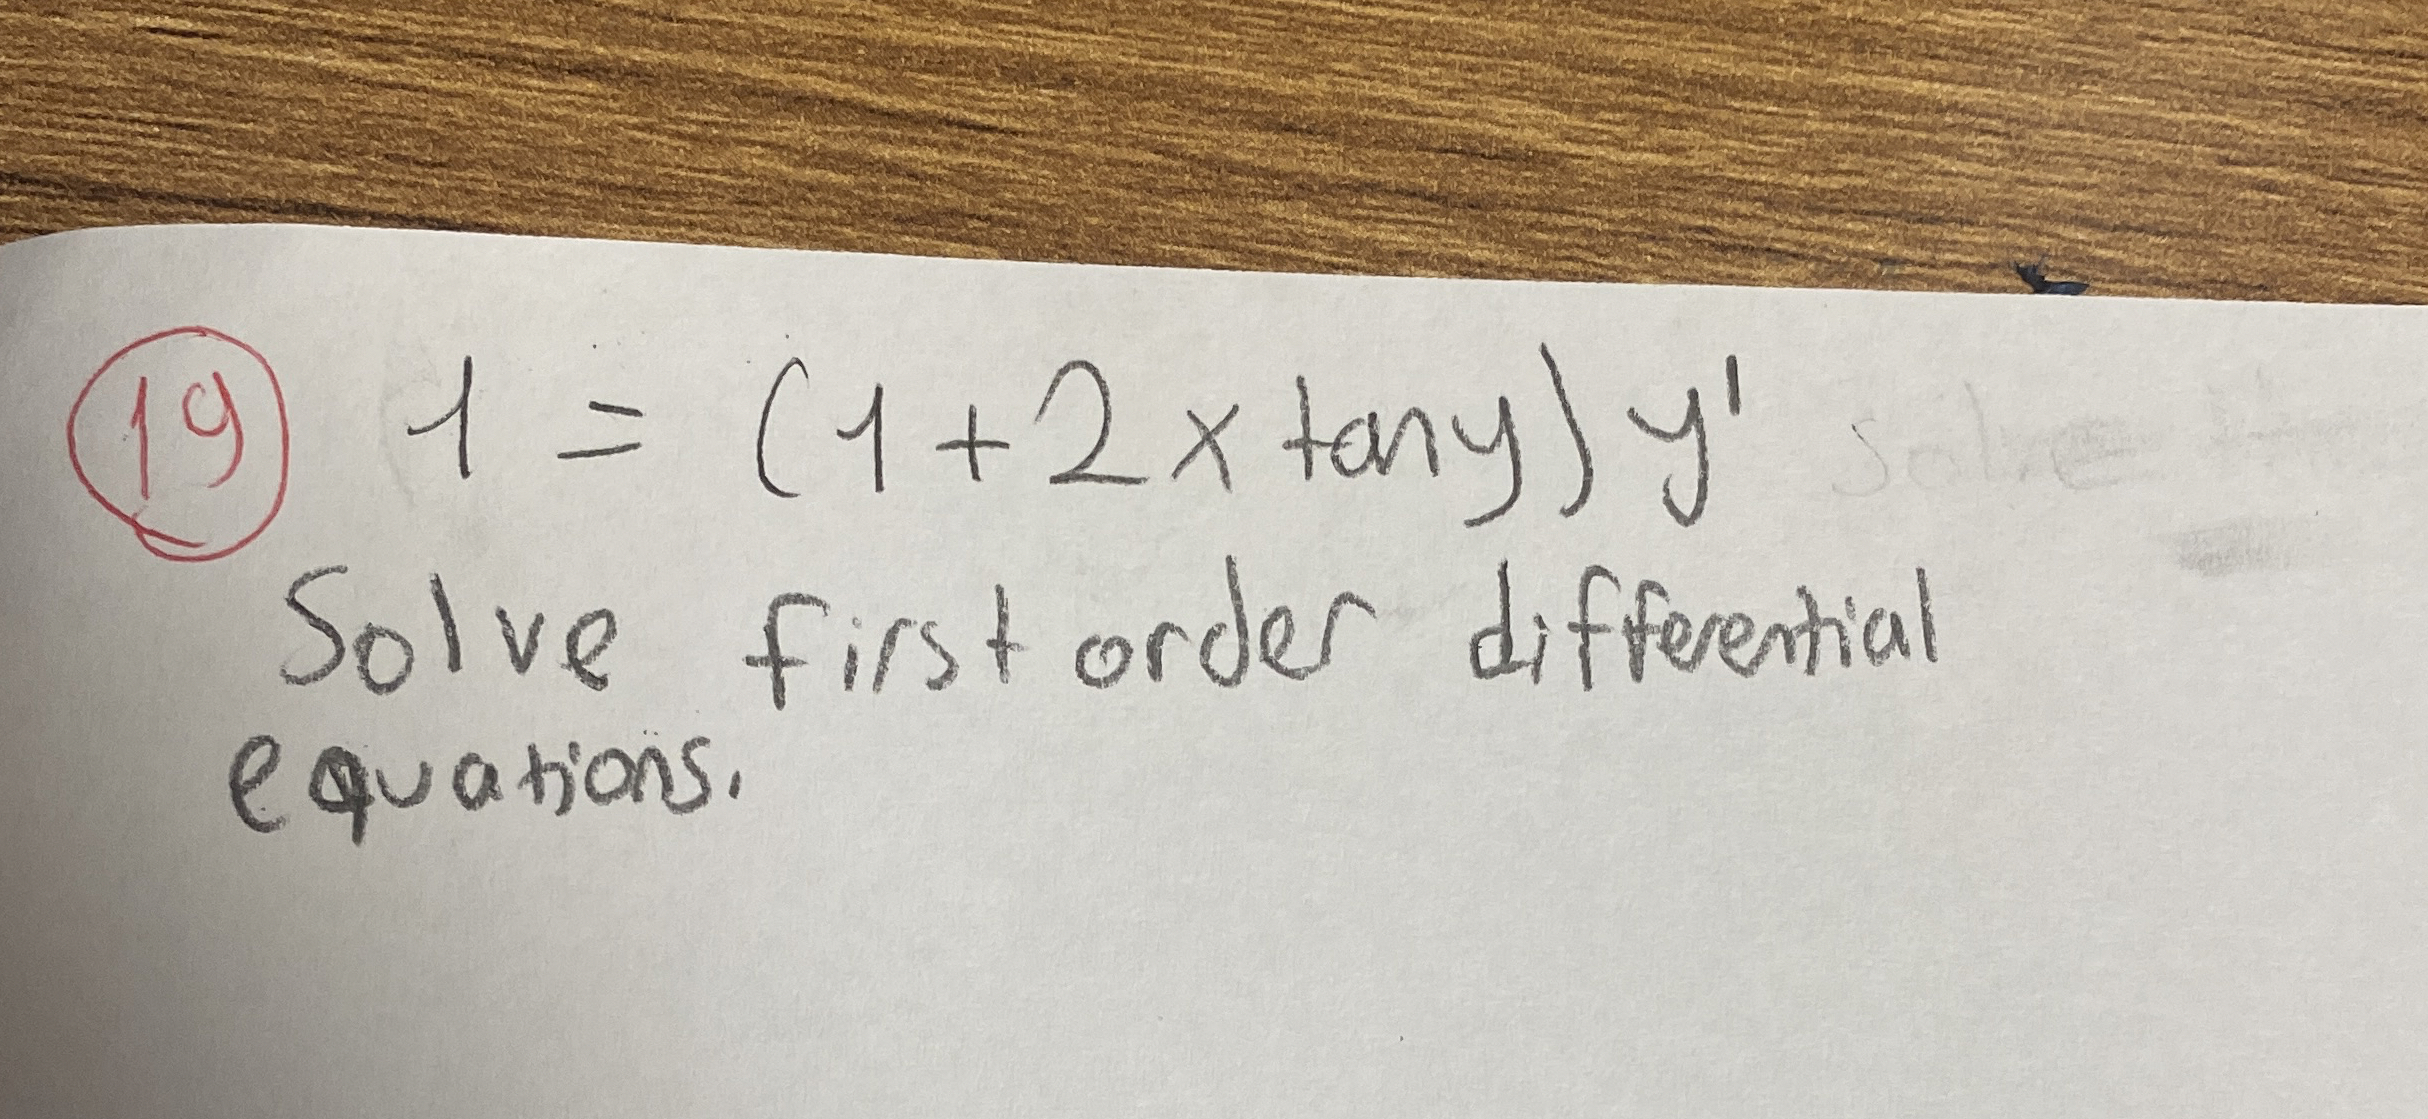 19 1 = (1 + 2 x tany) y' solve
Solve first order differential
equations.